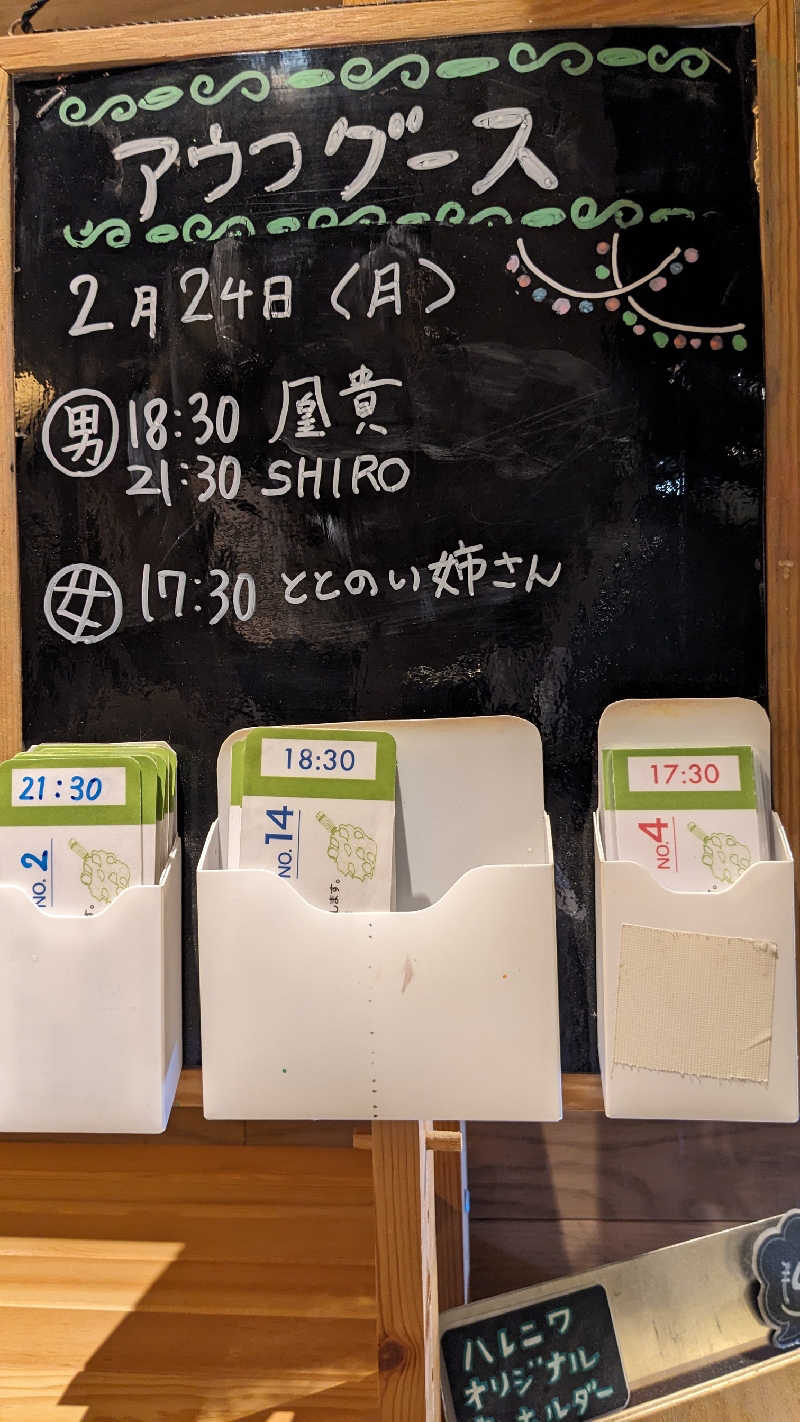 アウフグース
2月24日(月)
男 18:30 凰貴
21:30 SHIRO
女 17:30 ととのい姉さん
21:30
NO.2
す。
18:30
NO.14
します。
17:30
NO.4
ハレニワ
オリジナル
キーホルダー